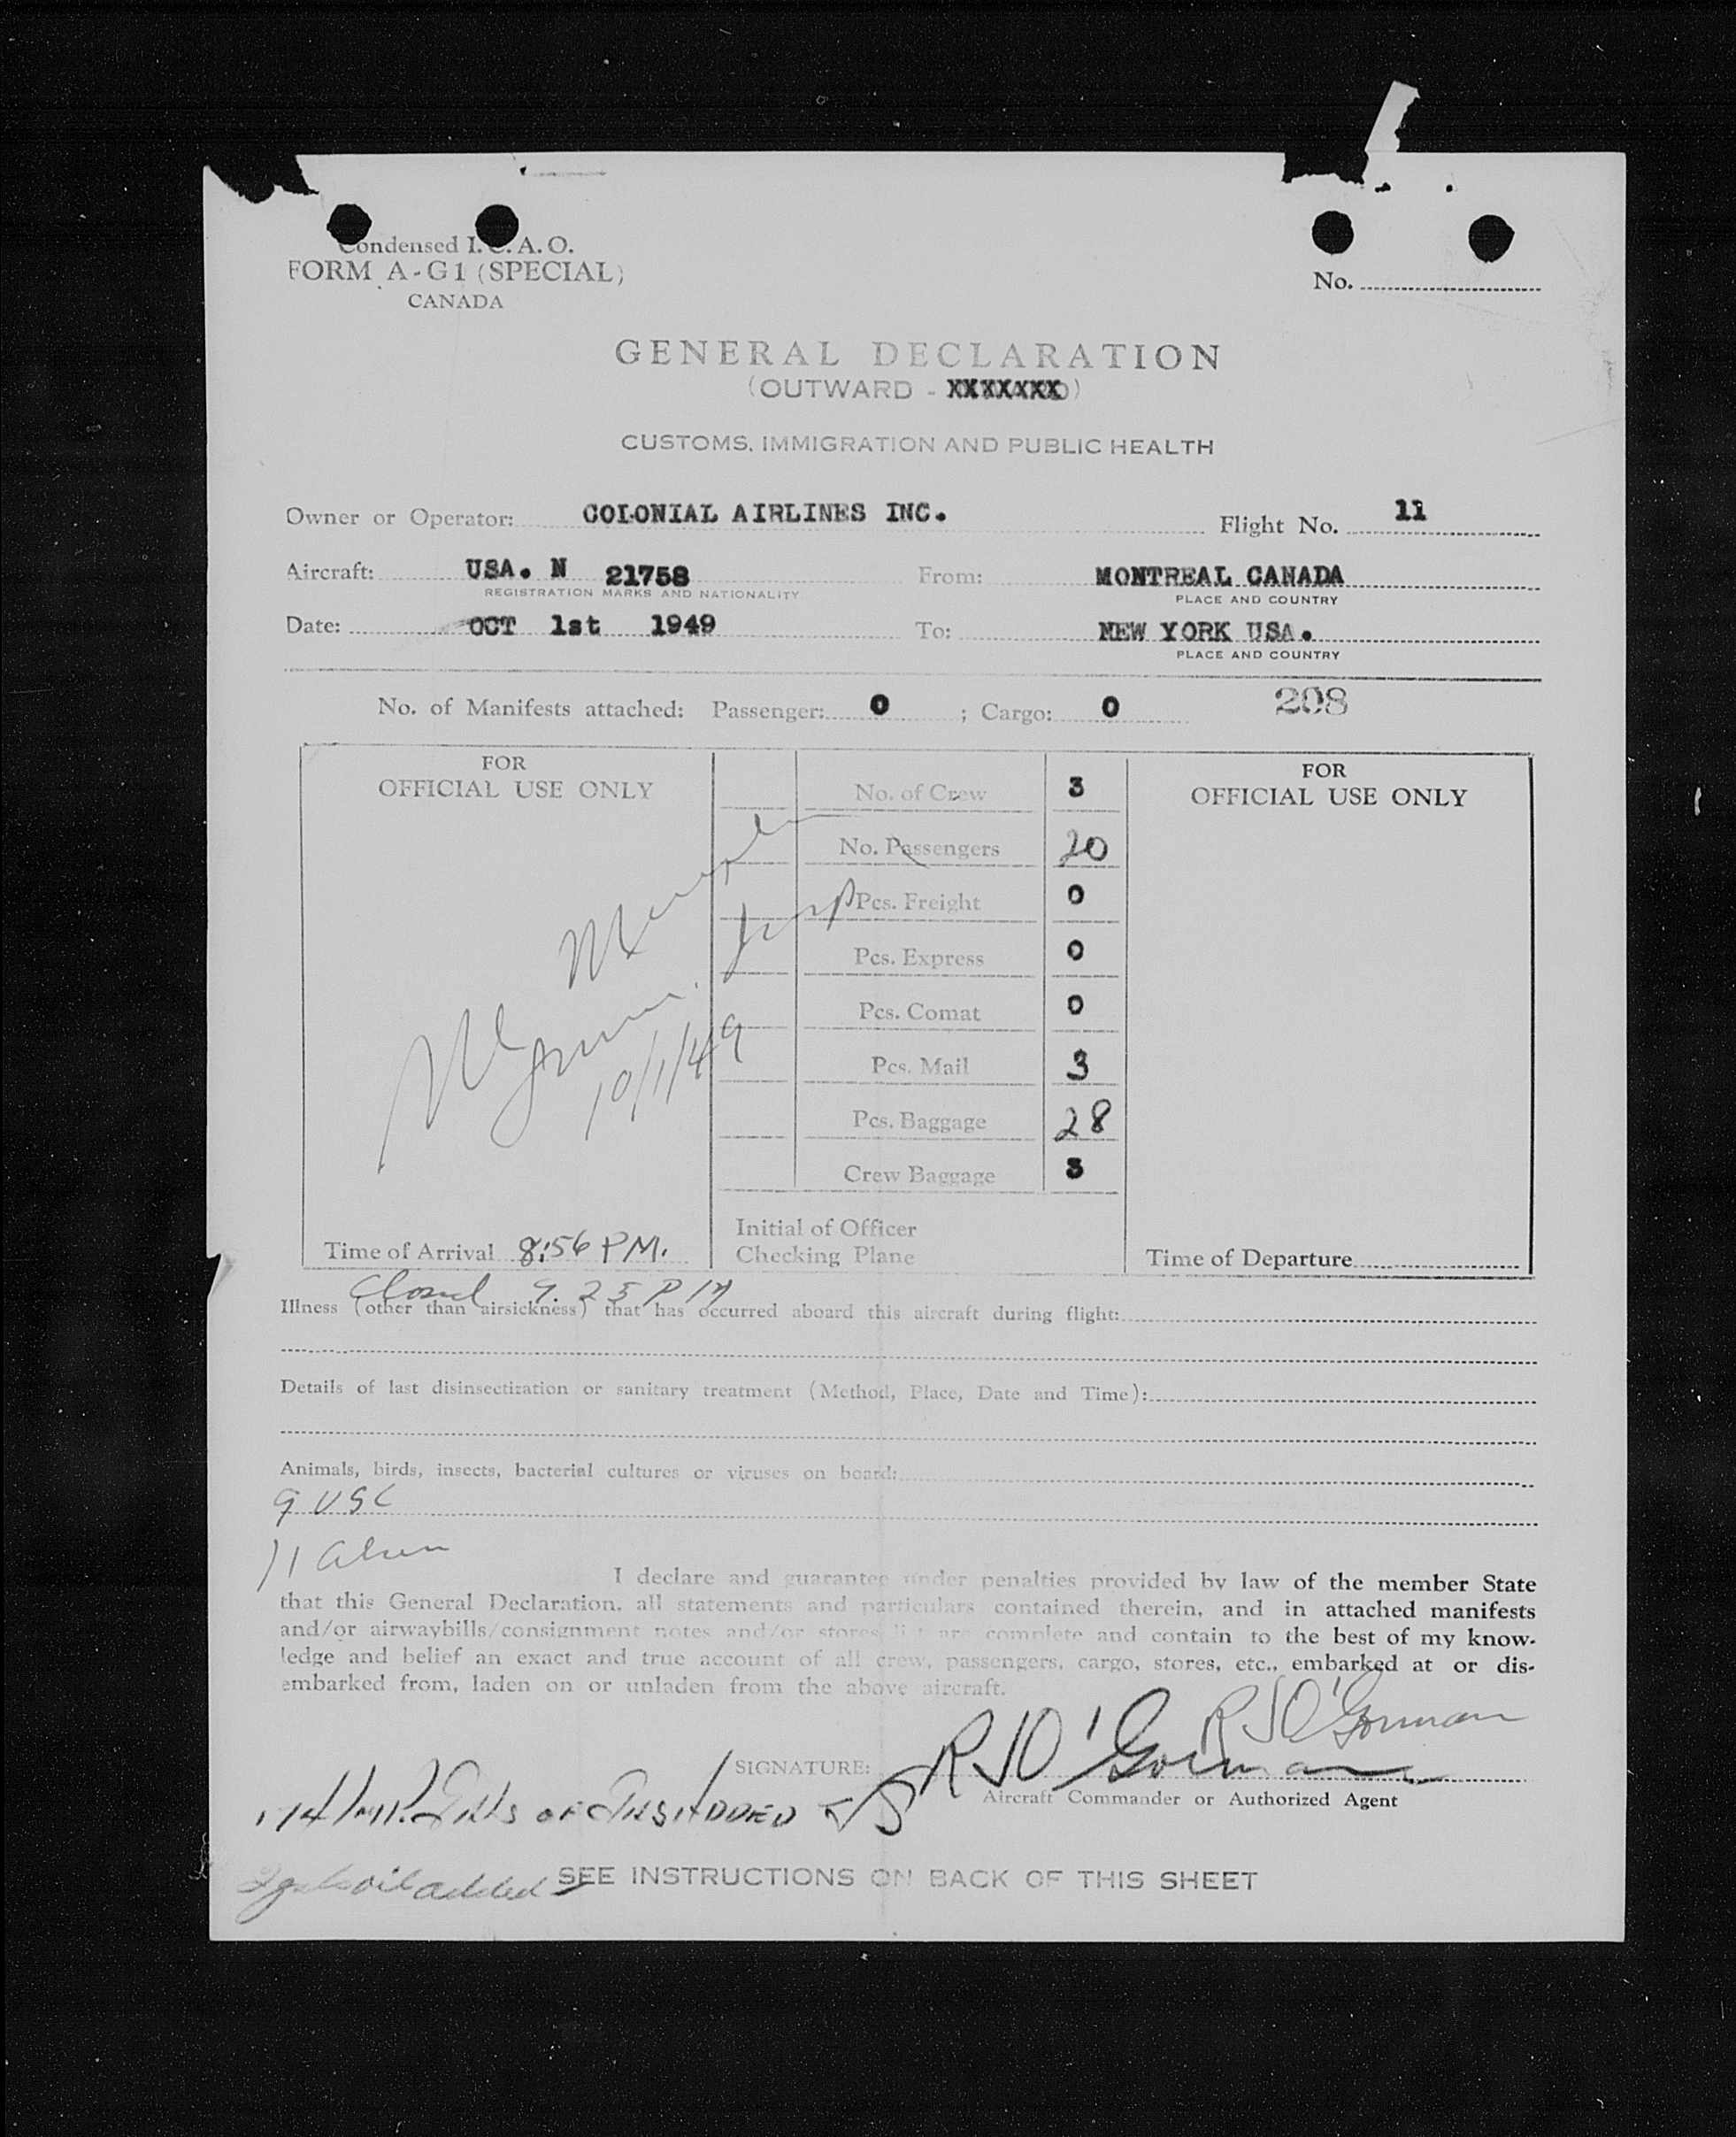 Condensed I.C.A.O.
FORM A-G1 (SPECIAL)
CANADA
No.
GENERAL DECLARATION
(OUTWARD - XXXXXXX)
CUSTOMS, IMMIGRATION AND PUBLIC HEALTH
Owner or Operator: COLONIAL AIRLINES INC. Flight No. 11
Aircraft: USA. N 21758 From: MONTREAL CANADA
REGISTRATION MARKS AND NATIONALITY PLACE AND COUNTRY
Date: OCT 1st 1949 To: NEW YORK USA.
PLACE AND COUNTRY
No. of Manifests attached: Passenger: 0 ; Cargo: 0 208
FOR
OFFICIAL USE ONLY
No. of Crew 3
No. Passengers 20
Pcs. Freight 0
Pcs. Express 0
Pcs. Comat 0
Pcs. Mail 3
Pcs. Baggage 28
Crew Baggage 3
FOR
OFFICIAL USE ONLY
10/1/49
Time of Arrival 8:56 PM.
Initial of Officer
Checking Plane
Time of Departure
Closed 9.25 PM
Illness (other than airsickness) that has occurred aboard this aircraft during flight:
Details of last disinsectization or sanitary treatment (Method, Place, Date and Time):
Animals, birds, insects, bacterial cultures or viruses on board:
9 USC
11 alien
I declare and guarantee under penalties provided by law of the member State
that this General Declaration, all statements and particulars contained therein, and in attached manifests
and/or airwaybills/consignment notes and/or stores list are complete and contain to the best of my know-
ledge and belief an exact and true account of all crew, passengers, cargo, stores, etc., embarked at or dis-
embarked from, laden on or unladen from the above aircraft.
R J O'Gorman
SIGNATURE: R J O'Gorman
Aircraft Commander or Authorized Agent
OF GAS ADDED
oil added
SEE INSTRUCTIONS ON BACK OF THIS SHEET